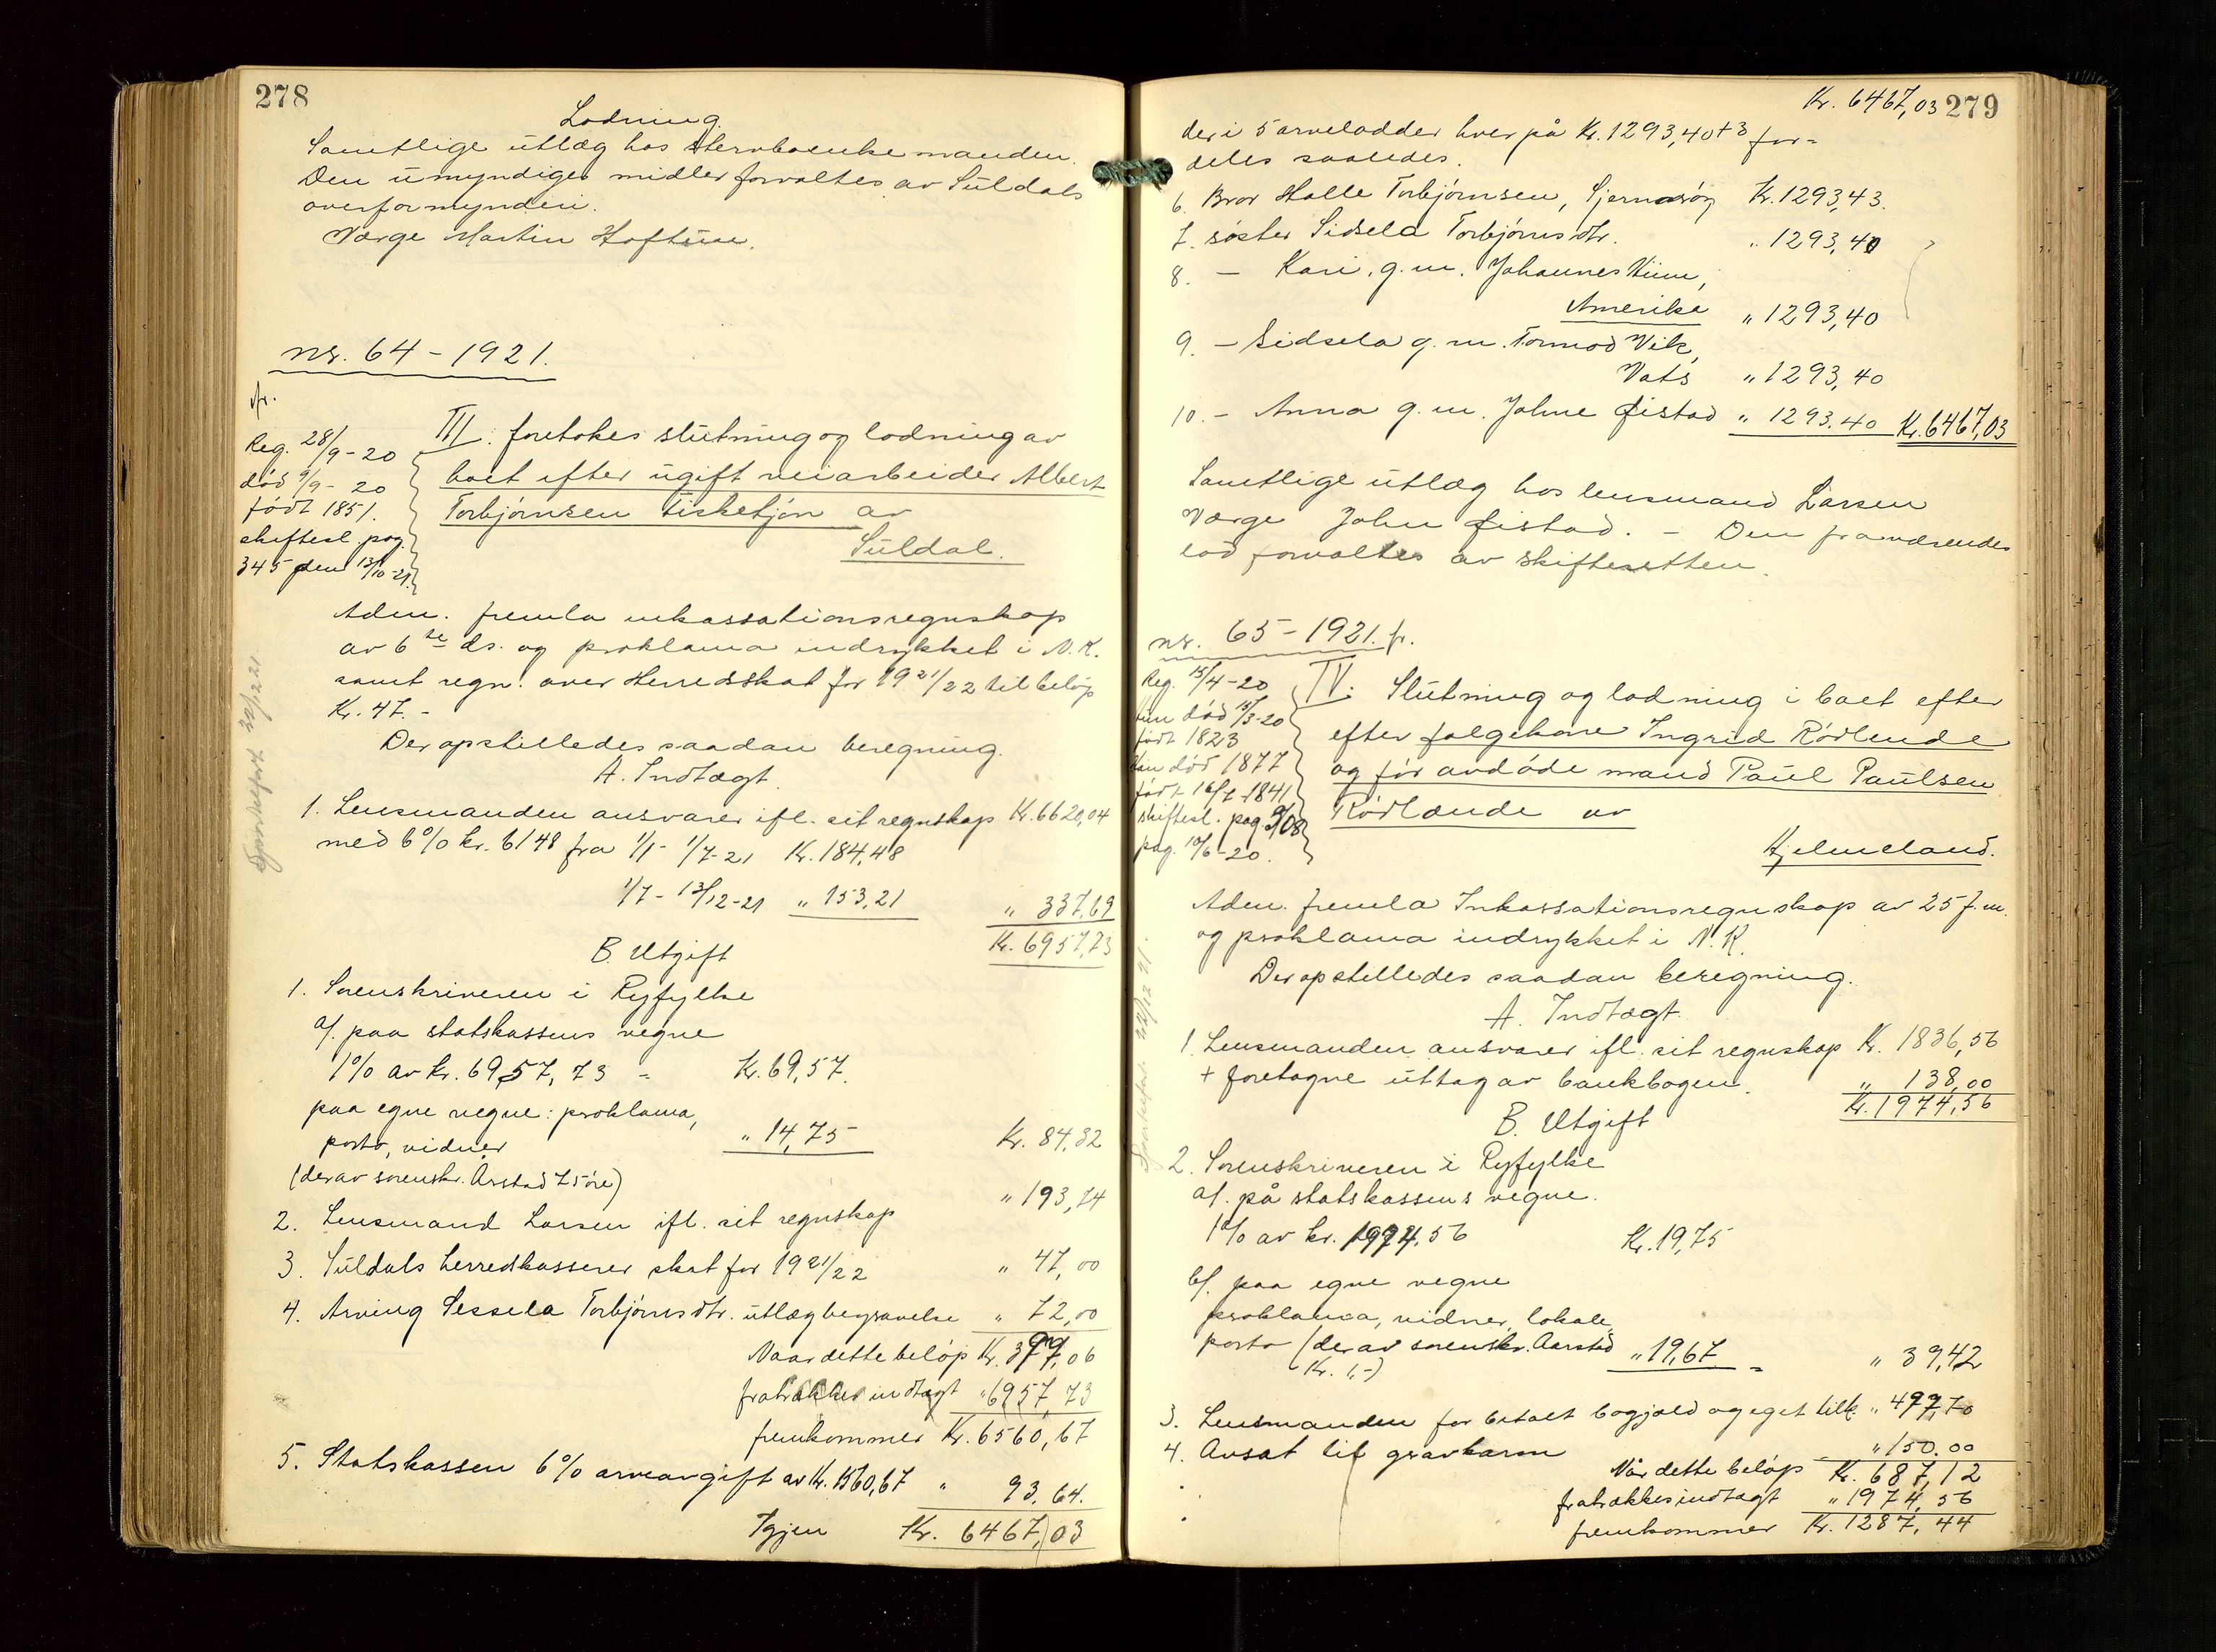 278
Lodning.
Samtlige utlæg hos stervboenkemanden.
Den umyndiges midler forvaltes av Suldals
overformynderi.
Værge Martin Hoftun.
nr. 64 - 1921.
fr.
Reg. 28/9-20
død 9/9-20
født 1851.
skiftesl. pag.
345 den 13/10-21.
III. foretokes slutning og lodning av
boet efter ugift veiarbeider Albert
Torbjørnsen Fisketjøn av
Suldal.
Adm. fremla inkassationsregnskap
av 6te ds. og proklama indrykket i N.K.
samt regn. over Herredskat for 1921/22 til beløp
Kr. 47.-
Der opstilledes saadan beregning.
A. Indtægt.
1. Lensmanden ansvarer ifl. sit regnskap Kr. 6620,04
med 6% kr. 6148 fra 1/1 - 1/7-21 Kr. 184,48
1/7 - 13/12-21 " 153,21 " 337,69
Kr. 6957,73
B. Utgift
1. Sorenskriveren i Ryfylke
a/. paa statskassens vegne
1% av kr. 6957,73 = Kr. 69,57.
paa egne vegne: proklama,
porto, vidner " 14,75 Kr. 84,32
(derav sorenskr. Aarstad 75 øre)
2. Lensmand Larsen ifl. sit regnskap " 193,74
3. Suldals herredskasserer skat for 1921/22 " 47,00
4. Arving Sessela Torbjørnsdtr. utlæg begravelse " 72,00
Naar dette beløp Kr. 397,06
fratrækkes indtægt " 6957,73
fremkommer Kr. 6560,67
5. Statskassen 6% arveavgift av Kr. 1560,67 " 93,64.
Igjen Kr. 6467,03
Kr. 6467,03 279
der i 5 arvelodder hver på Kr. 1293,40 + 3 for-
deles saaledes.
6. Bror Halle Torbjørnsen, Sjernarøy Kr. 1293,43.
7. søster Sidsela Torbjørnsdtr. " 1293,40
8. - Kari, g.m. Johannes Hiim,
Amerika " 1293,40
9. - Sidsela g.m. Tormod Vik,
Vats " 1293,40
10 - Anna g.m. Johne Øistad " 1293.40 Kr. 6467,03
Samtlige utlæg hos lensmand Larsen
Værge John Øistad. - Den fraværendes
lod forvaltes av skifteretten.
nr. 65 - 1921. fr.
Reg. 15/4-20
født 1823
død 1877
født 16/7-1841
skiftesl. pag.
pag. 10/6-20.
IV. Slutning og lodning i boet efter
efter følgekone Ingrid Rødlende
og før avdøde mand Paul Paulsen
Rødlænde av
Hjelmeland.
Adm. fremla Inkassationsregnskap av 25 f.m.
og proklama indrykket i N.K.
Der opstilledes saadan beregning.
A. Indtægt
1. Lensmanden ansvarer ifl. sit regnskap Kr. 1836,56
+ foretagne uttag av bankbogen. " 138,00
Kr. 1974,56
B. Utgift
2. Sorenskriveren i Ryfylke
a/. på statskassens vegne.
1% av kr. 1974,56 Kr. 19,75
b/. paa egne vegne
proklama, vidner, lokale,
porto (derav sorenskr. Aarstad " 19,67 = " 39,42
Kr. 1,-)
3. Lensmanden for betalt bogjæld og eget tilk. " 497,70
4. Avsat til gravkarm " 150.00
Når dette beløp Kr. 687,12
fratrækkes indtægt " 1974,56
fremkommer Kr. 1287,44